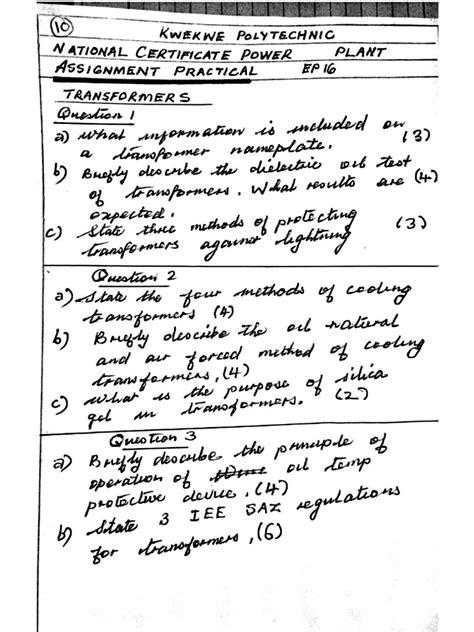 10
KWEKWE POLYTECHNIC
NATIONAL CERTIFICATE POWER PLANT
ASSIGNMENT PRACTICAL EP16
TRANSFORMERS
Question 1
a) What information is included on
a transformer nameplate. (3)
b) Briefly describe the dielectric oil test
of transformers. What results are (4)
expected.
c) State three methods of protecting (3)
transformers against lightning
Question 2
a) State the four methods of cooling
transformers (4)
b) Briefly describe the oil natural
and air forced method of cooling
transformers, (4)
c) What is the purpose of silica
gel in transformers. (2)
Question 3
a) Briefly describe the principle of
operation of oil temp
protective device. (4)
b) State 3 IEE SAZ regulations
for transformers, (6)